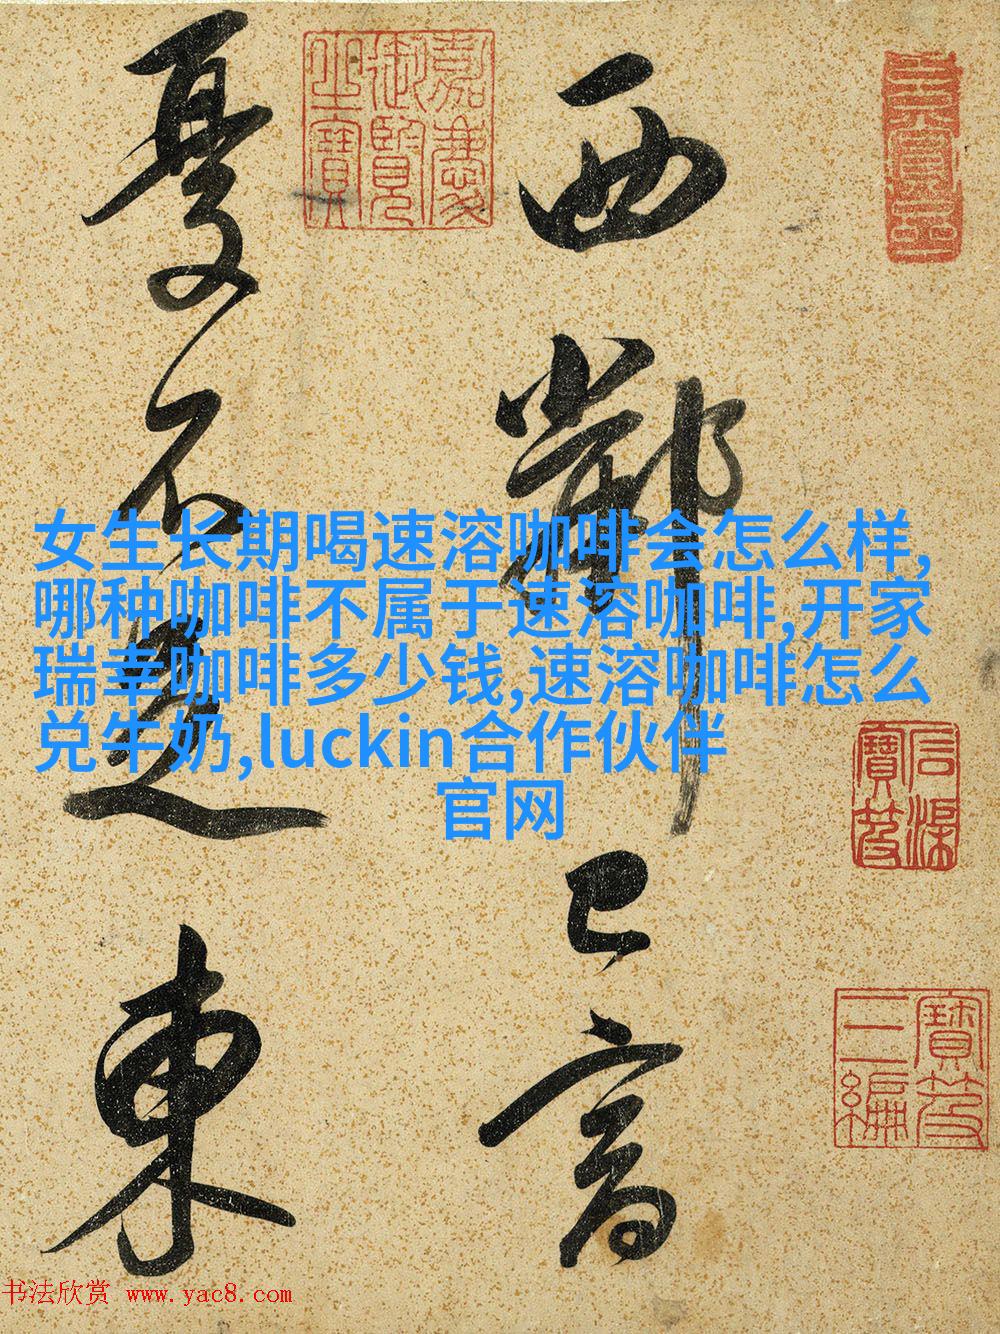 西鄰已富
憂不足東
嘉慶
御覽
之寶
女生长期喝速溶咖啡会怎么样,
哪种咖啡不属于速溶咖啡,开家
瑞幸咖啡多少钱,速溶咖啡怎么
兑牛奶,luckin合作伙伴
官网
石渠
寶笈
寶笈
三編
书法欣赏 www.yac8.com